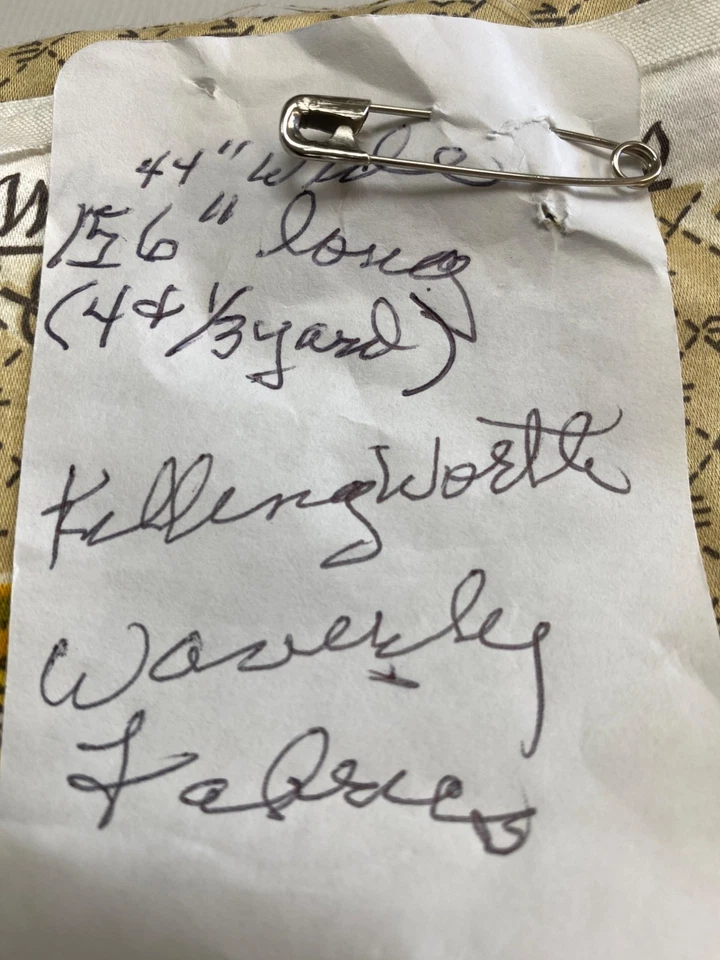 44" Wide
156" long
(4 & 1/3 yard)
Killingworth
Waverley
Fabrics